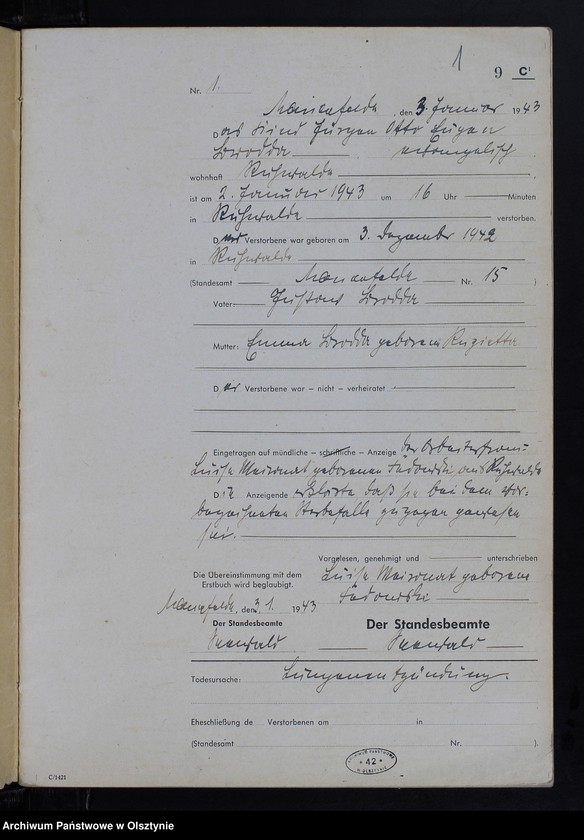 1
9 C1
Nr. 1.
den 3. Januar 1943
Das Kind Jürgen Otto Eugen
evangelisch
wohnhaft Ruhwalde
ist am 2. Januar 1943 um 16 Uhr Minuten
in Ruhwalde verstorben.
D Verstorbene war geboren am 3. Dezember 1942
in Ruhwalde
(Standesamt Nr. 15 )
Vater: Gustav
Mutter: Emma geborene
Der Verstorbene war – nicht – verheiratet
Eingetragen auf mündliche – schriftliche – Anzeige der Arbeiterfrau
Luise geborenen aus Ruhwalde
Die Anzeigende erklärte daß sie bei dem vor-
bezeichneten Sterbefalle zugegen gewesen
sei.
Vorgelesen, genehmigt und unterschrieben
Die Übereinstimmung mit dem
Erstbuch wird beglaubigt.
Luise geborene
den 3.1. 1943
Der Standesbeamte
Der Standesbeamte
Todesursache: Lungenentzündung.
Eheschließung de Verstorbenen am in
(Standesamt Nr. ).
ARCHIWUM PAŃSTWOWE
* 42 *
W OLSZTYNIE
C/1621
Archiwum Państwowe w Olsztynie